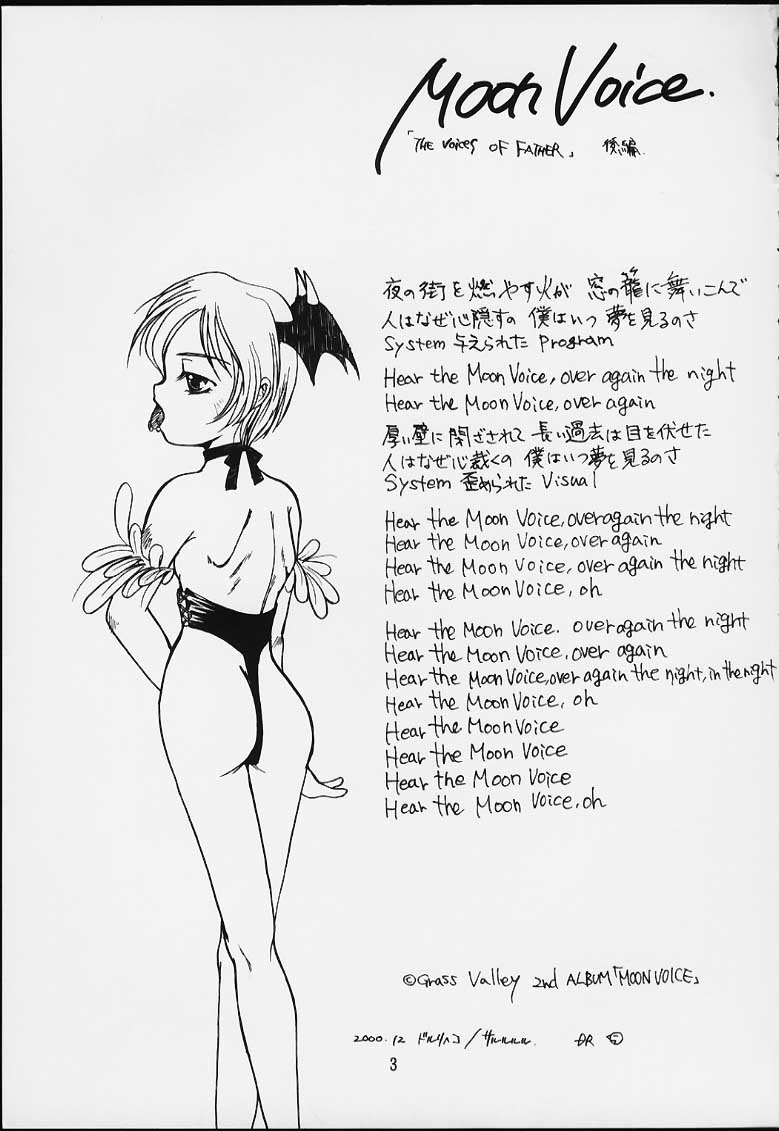 Moon Voice.
「THE VOICES OF FATHER」 後編.
夜の街を燃やす火が 窓の籠に舞いこんで
人はなぜ心隠すの 僕はいつ夢を見るのさ
System 与えられた Program
Hear the Moon Voice, over again the night
Hear the Moon Voice, over again
厚い壁に閉ざされて 長い過去は目を伏せた
人はなぜ心裁くの 僕はいつ夢を見るのさ
System 歪められた Visual
Hear the Moon Voice, over again the night
Hear the Moon Voice, over again
Hear the Moon Voice, over again the night
Hear the Moon Voice, oh
Hear the Moon Voice. over again the night
Hear the Moon Voice, over again
Hear the Moon Voice, over again the night, in the night
Hear the Moon Voice, oh
Hear the Moon Voice
Hear the Moon Voice
Hear the Moon Voice
Hear the Moon Voice, oh
©Grass Valley 2nd ALBUM「MOON VOICE」
2000.12
3